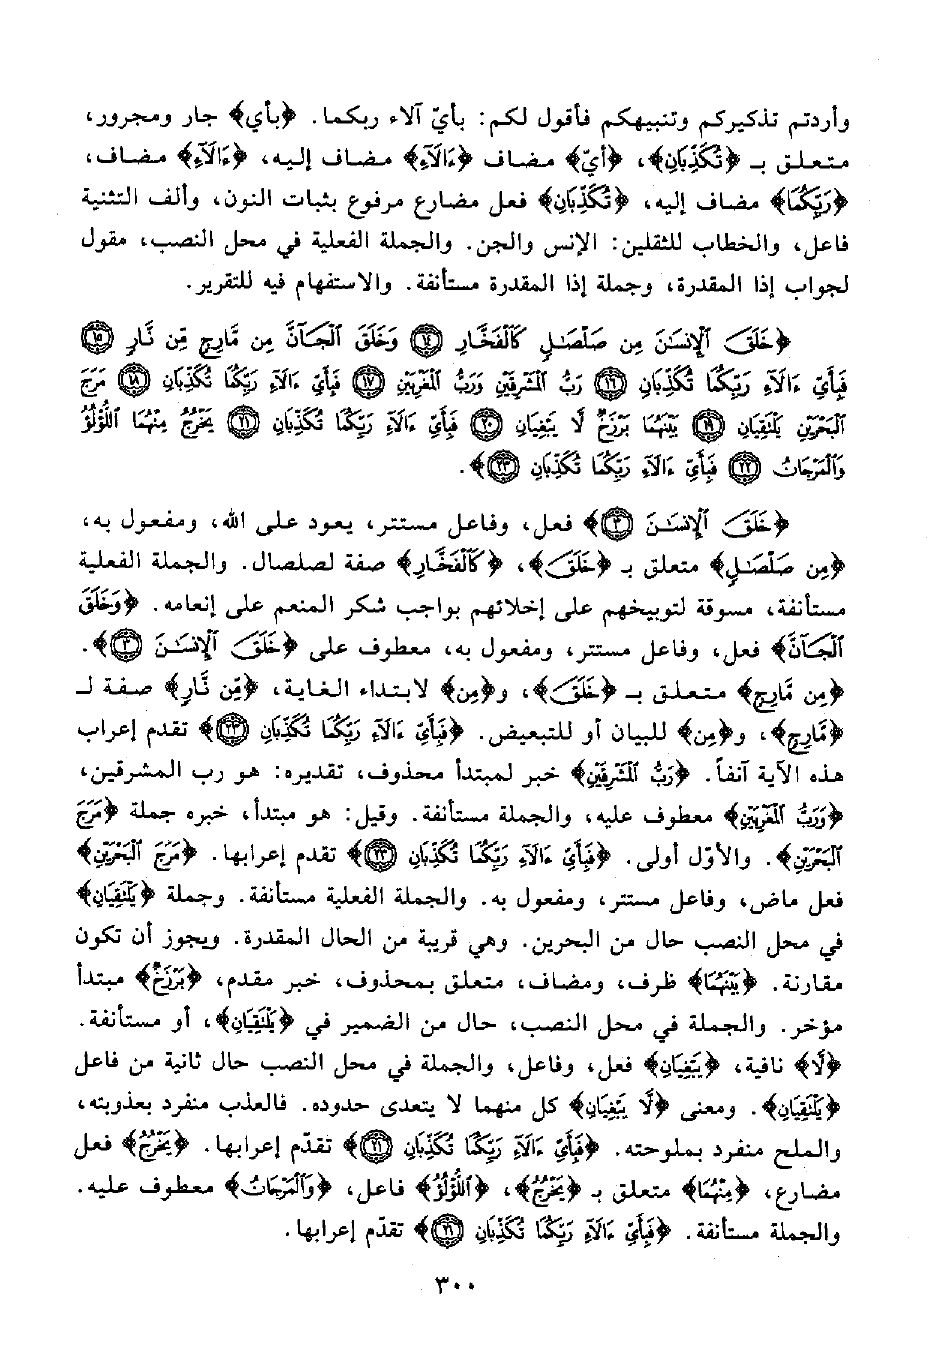 وأردتم تذكيركم وتنبيهكم فأقول لكم: بأيّ آلاء ربكما. ﴿بأي﴾ جار ومجرور،
متعلق بـ ﴿تُكَذِّبَانِ﴾، ﴿أيّ﴾ مضاف ﴿ءَالَآءِ﴾ مضاف إليه، ﴿ءَالَآءِ﴾ مضاف،
﴿رَبِّكُمَا﴾ مضاف إليه، ﴿تُكَذِّبَانِ﴾ فعل مضارع مرفوع بثبات النون، وألف التثنية
فاعل، والخطاب للثقلين: الإنس والجن. والجملة الفعلية في محل النصب، مقول
لجواب إذا المقدرة، وجملة إذا المقدرة مستأنفة. والاستفهام فيه للتقرير.
﴿خَلَقَ ٱلْإِنسَٰنَ مِن صَلْصَٰلٍ كَٱلْفَخَّارِ ١٤ وَخَلَقَ ٱلْجَآنَّ مِن مَّارِجٍ مِّن نَّارٍ ١٥
فَبِأَيِّ ءَالَآءِ رَبِّكُمَا تُكَذِّبَانِ ١٦ رَبُّ ٱلْمَشْرِقَيْنِ وَرَبُّ ٱلْمَغْرِبَيْنِ ١٧ فَبِأَيِّ ءَالَآءِ رَبِّكُمَا تُكَذِّبَانِ ١٨ مَرَجَ
ٱلْبَحْرَيْنِ يَلْتَقِيَانِ ١٩ بَيْنَهُمَا بَرْزَخٌ لَّا يَبْغِيَانِ ٢٠ فَبِأَيِّ ءَالَآءِ رَبِّكُمَا تُكَذِّبَانِ ٢١ يَخْرُجُ مِنْهُمَا ٱللُّؤْلُؤُ
وَٱلْمَرْجَانُ ٢٢ فَبِأَيِّ ءَالَآءِ رَبِّكُمَا تُكَذِّبَانِ ٢٣﴾.
﴿خَلَقَ ٱلْإِنسَٰنَ ٣﴾ فعل، وفاعل مستتر، يعود على الله، ومفعول به،
﴿مِن صَلْصَٰلٍ﴾ متعلق بـ ﴿خَلَقَ﴾، ﴿كَٱلْفَخَّارِ﴾ صفة لصلصال. والجملة الفعلية
مستأنفة، مسوقة لتوبيخهم على إخلائهم بواجب شكر المنعم على إنعامه. ﴿وَخَلَقَ
ٱلْجَآنَّ﴾ فعل، وفاعل مستتر، ومفعول به، معطوف على ﴿خَلَقَ ٱلْإِنسَٰنَ ٣﴾.
﴿مِن مَّارِجٍ﴾ متعلق بـ ﴿خَلَقَ﴾، و﴿مِن﴾ لابتداء الغاية، ﴿مِّن نَّارٍ﴾ صفة لـ
﴿مَّارِجٍ﴾، و﴿مِن﴾ للبيان أو للتبعيض. ﴿فَبِأَيِّ ءَالَآءِ رَبِّكُمَا تُكَذِّبَانِ ٢٣﴾ تقدم إعراب
هذه الآية آنفاً. ﴿رَبُّ ٱلْمَشْرِقَيْنِ﴾ خبر لمبتدأ محذوف، تقديره: هو رب المشرقين،
﴿وَرَبُّ ٱلْمَغْرِبَيْنِ﴾ معطوف عليه، والجملة مستأنفة. وقيل: هو مبتدأ، خبره جملة ﴿مَرَجَ
ٱلْبَحْرَيْنِ﴾. والأوّل أولى. ﴿فَبِأَيِّ ءَالَآءِ رَبِّكُمَا تُكَذِّبَانِ ٢٣﴾ تقدم إعرابها. ﴿مَرَجَ ٱلْبَحْرَيْنِ﴾
فعل ماض، وفاعل مستتر، ومفعول به. والجملة الفعلية مستأنفة. وجملة ﴿يَلْتَقِيَانِ﴾
في محل النصب حال من البحرين. وهي قريبة من الحال المقدرة. ويجوز أن تكون
مقارنة. ﴿بَيْنَهُمَا﴾ ظرف، ومضاف، متعلق بمحذوف، خبر مقدم، ﴿بَرْزَخٌ﴾ مبتدأ
مؤخر. والجملة في محل النصب، حال من الضمير في ﴿يَلْتَقِيَانِ﴾، أو مستأنفة.
﴿لَّا﴾ نافية، ﴿يَبْغِيَانِ﴾ فعل، وفاعل، والجملة في محل النصب حال ثانية من فاعل
﴿يَلْتَقِيَانِ﴾. ومعنى ﴿لَّا يَبْغِيَانِ﴾ كل منهما لا يتعدى حدوده. فالعذب منفرد بعذوبته،
والملح منفرد بملوحته. ﴿فَبِأَيِّ ءَالَآءِ رَبِّكُمَا تُكَذِّبَانِ ٢١﴾ تقدّم إعرابها. ﴿يَخْرُجُ﴾ فعل
مضارع، ﴿مِنْهُمَا﴾ متعلق بـ ﴿يَخْرُجُ﴾، ﴿ٱللُّؤْلُؤُ﴾ فاعل، ﴿وَٱلْمَرْجَانُ﴾ معطوف عليه.
والجملة مستأنفة. ﴿فَبِأَيِّ ءَالَآءِ رَبِّكُمَا تُكَذِّبَانِ ٢١﴾ تقدّم إعرابها.
٣٠٠